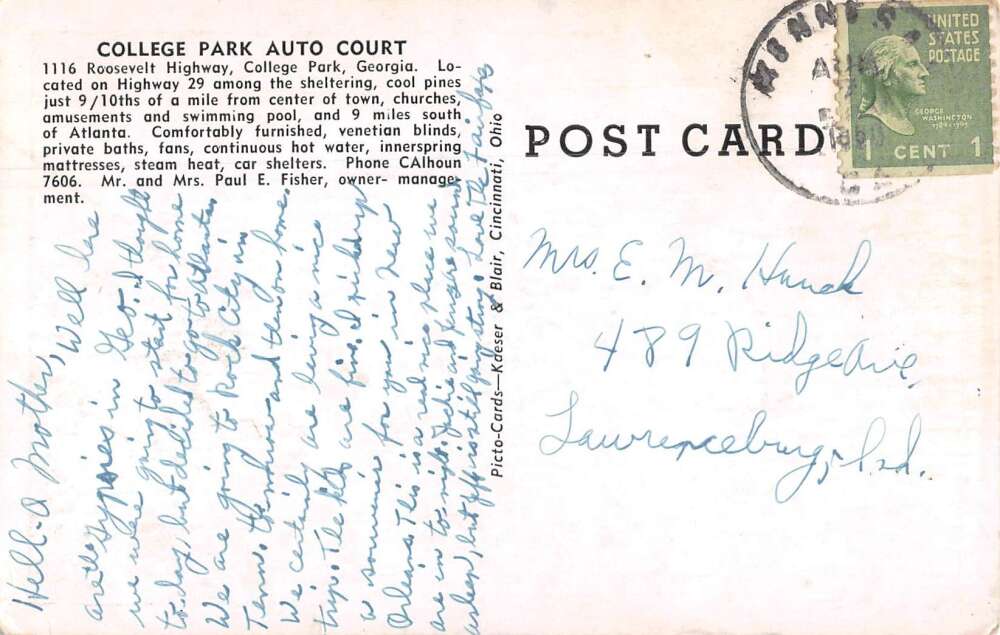 COLLEGE PARK AUTO COURT
1116 Roosevelt Highway, College Park, Georgia. Lo-
cated on Highway 29 among the sheltering, cool pines
just 9/10ths of a mile from center of town, churches,
amusements and swimming pool, and 9 miles south
of Atlanta. Comfortably furnished, venetian blinds,
private baths, fans, continuous hot water, innerspring
mattresses, steam heat, car shelters. Phone CAlhoun
7606. Mr. and Mrs. Paul E. Fisher, owner- manage-
ment.
Hell-o Mother, Well here
are the Gypsies in Geo. I thought
we were going to start for home
to-day, but decided to go to Atlanta
We are going to Rock City in
Tenn. tomorrow and then on home
We certainly are having a nice
trip. The kids are fine. I picked up
a souvenir for you in New
Orleans. This is a real nice place we
are in to-night. Jackie and are sound
asleep, but Jeff is still fighting. Love The Fairfaxs
Picto-Cards—Kaeser & Blair, Cincinnati, Ohio
POST CARD
UNITED
STATES
POSTAGE
GEORGE
WASHINGTON
1789-1797
1 CENT 1
Mrs. E. M. Hunch
489 Ridge Ave.
Lawrenceburg, Ind.